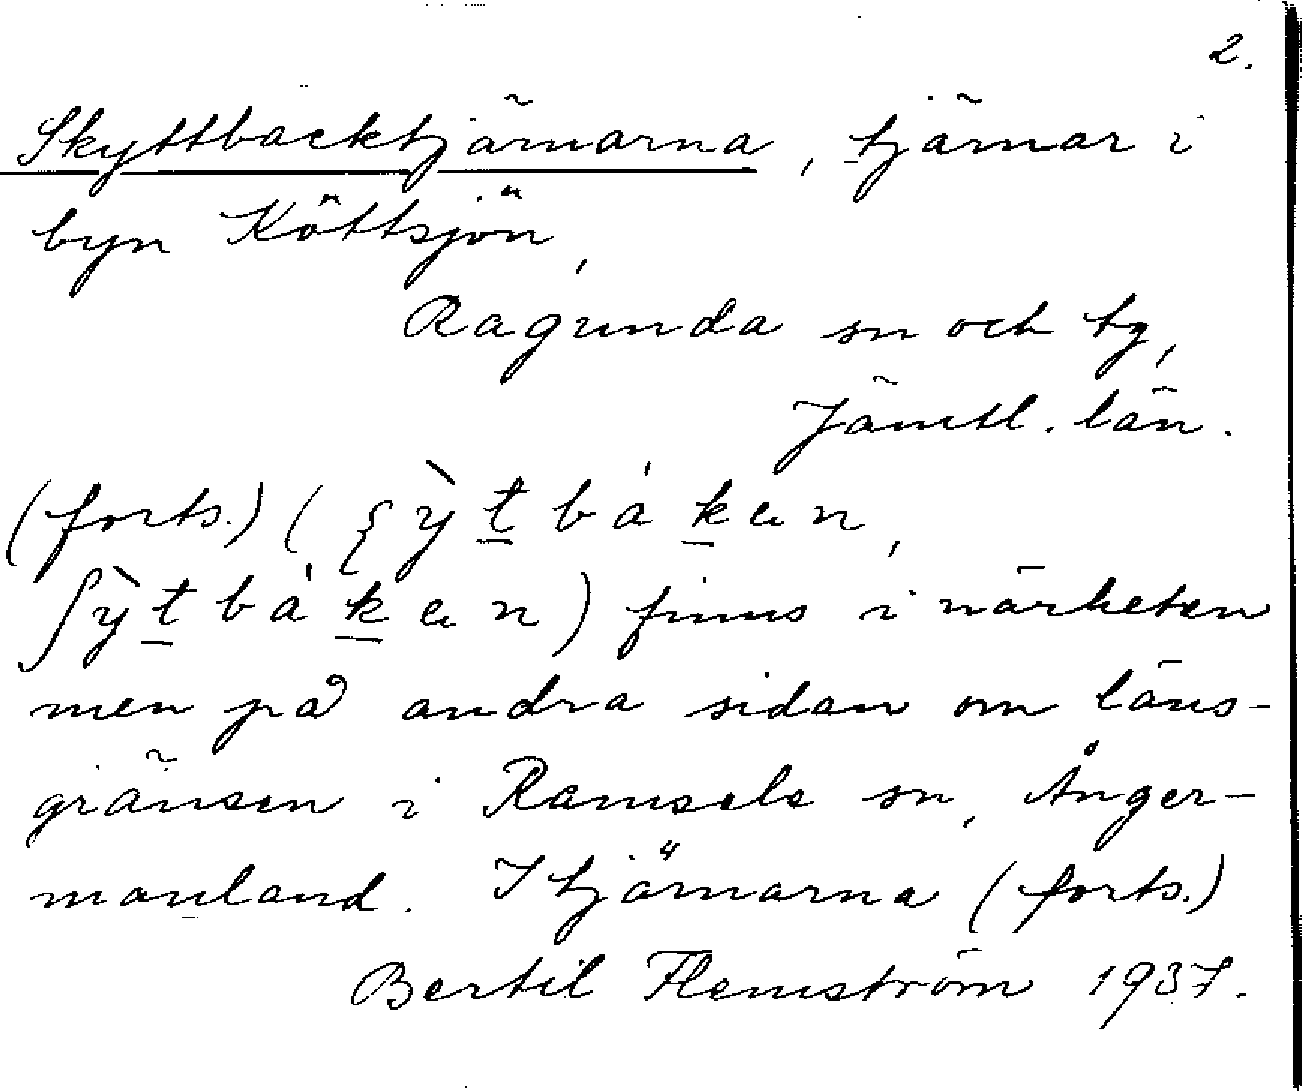 2.
Skyttbacktjärnarna, tjärnar i
byn Köttsjön,
Ragunda sn och tg,
Jämtl. län.
(forts.) (ʂỳt̲bák̲en,
ʃỳt̲bák̲en) finns i närheten
men på andra sidan om läns-
gränsen i Ramsele sn, Ånger-
manland. I tjärnarna (forts.)
Bertil Flemström 1937.